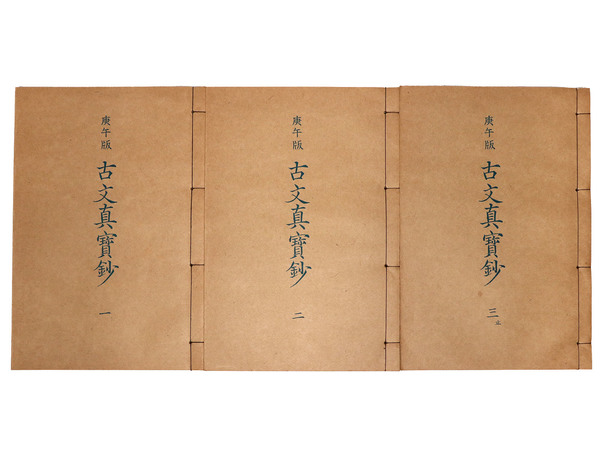 庚午版
古文真寶鈔
一
庚午版
古文真寶鈔
二
庚午版
古文真寶鈔
三
止